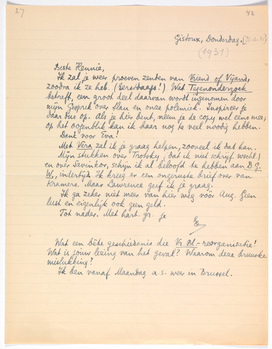 27
48
Gistoux, Donderdag
(1931)
Beste Hennie,
Ik zal je weer proeven zenden van Vriend of Vijand,
zoodra ik ze heb. (Eerstdaags!) Wat Tegenonderzoek
betreft, een groot deel daarvan wordt ingenomen door
mijn gesprek over Slau en onze polemiek. Inspireer je
daar dus op. Als je hier bent, neem je de copy wel eens mee,
op het oogenblik kan ik daar nog te veel noodig hebben.
Dank voor Eva!
Met Vera zal ik je graag helpen, zooveel ik dat kan.
Mijn stukken over Trotsky, dat ik niet schrijf wordt)
en over Savinkov, schijn ik al beloofd te hebben aan D.G.
W., intertijd. Ik kreeg er een ongeruste brief over van
Kramers. Maar Lawrence geef ik je graag.
Ik ga zeker niet meer van hier weg vóór Aug. Geen
lust en eigenlijk ook geen geld.
Tot nader. Met hart. gr. je
E.
Wat een bête geschiedenis die Vr. Bl.-reorganisatie!
Wat is jouw lezing van het geval? Waarom deze breuske
mislukking?
Ik ben vanaf Maandag a.s. weer in Brussel.